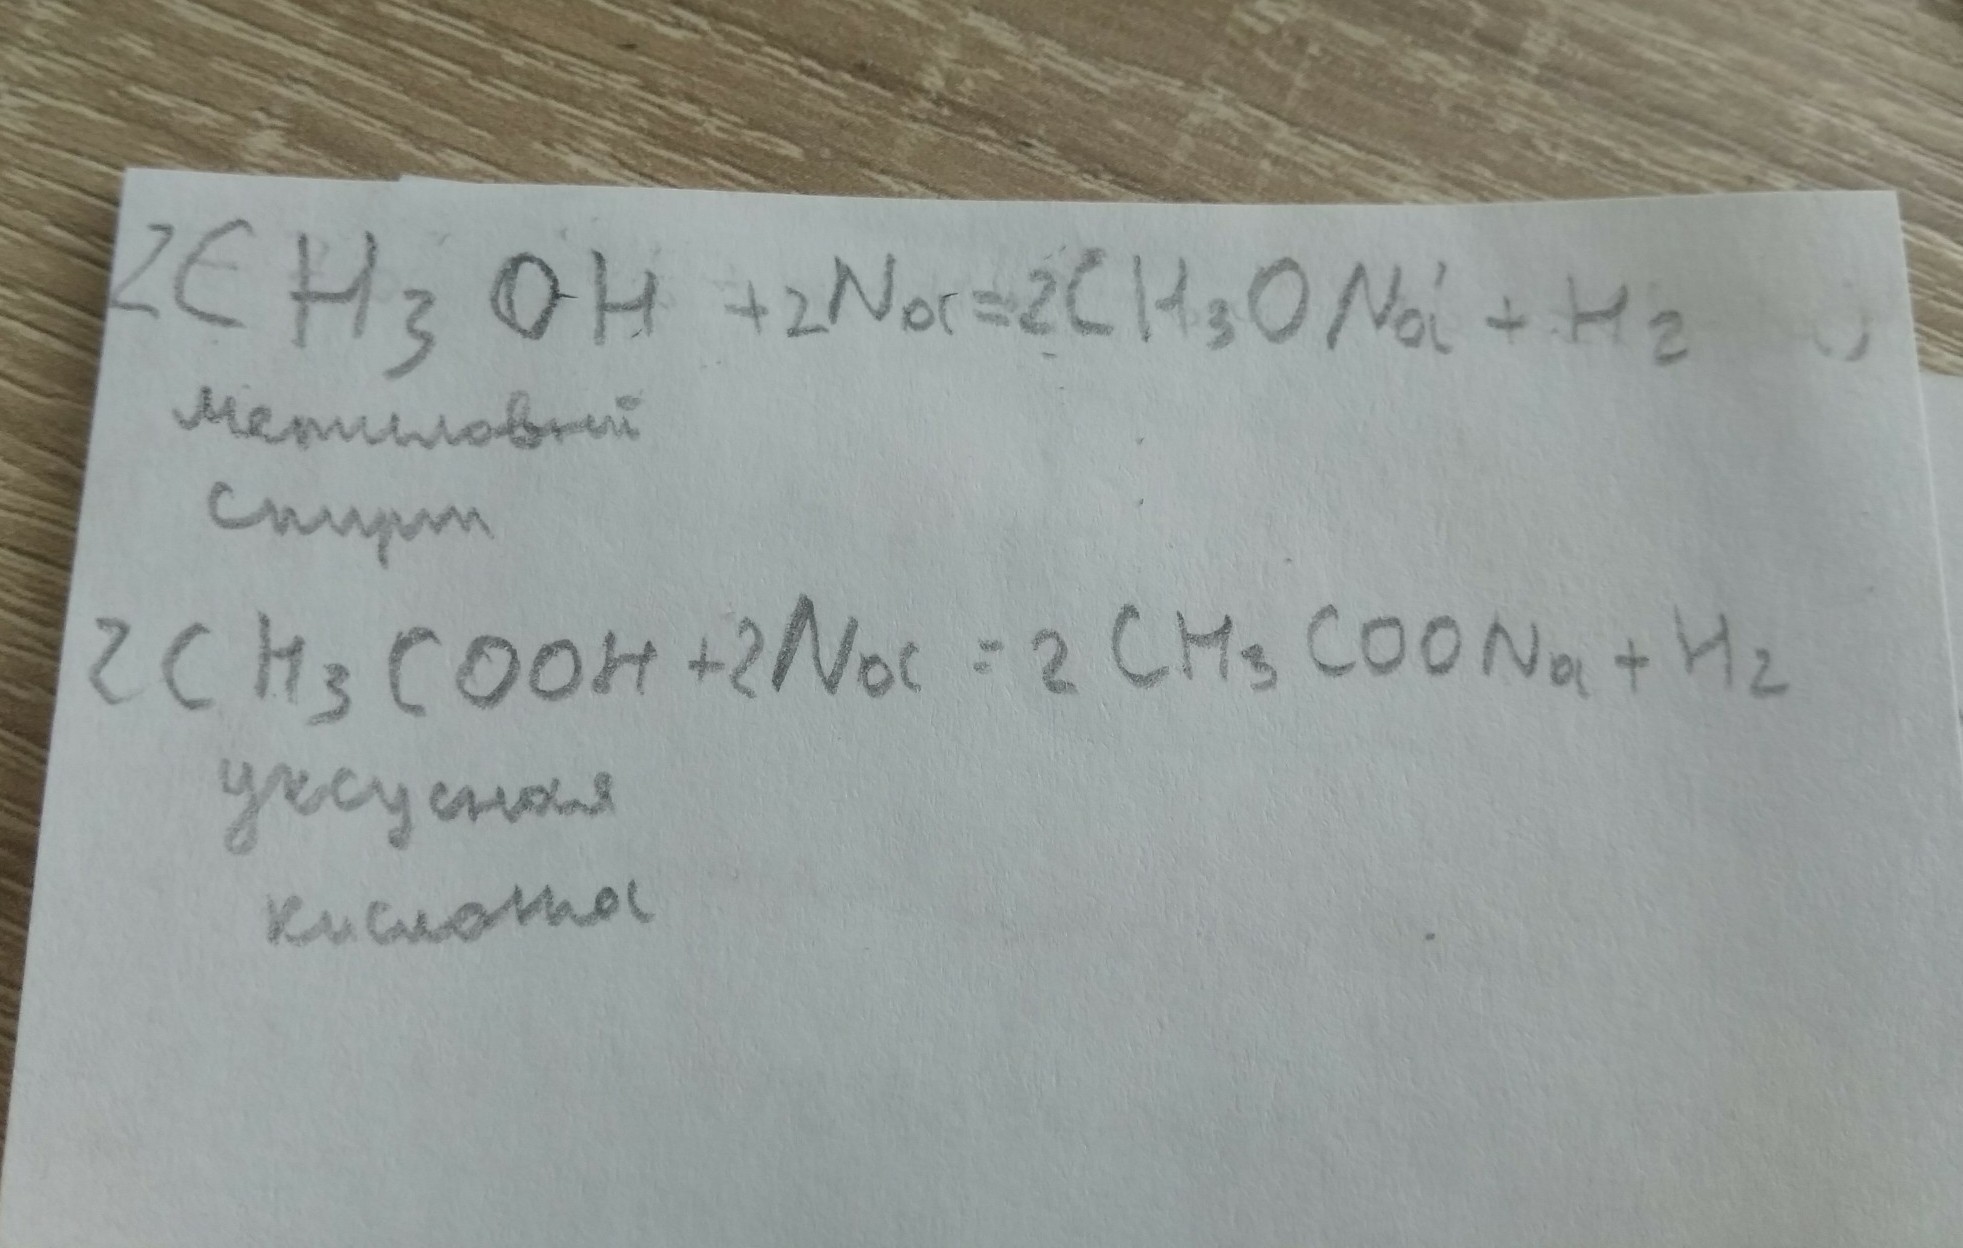 2CH₃OH + 2Na = 2CH₃ONa + H₂
метиловый
спирт
2CH₃COOH + 2Na = 2CH₃COONa + H₂
уксусная
кислота